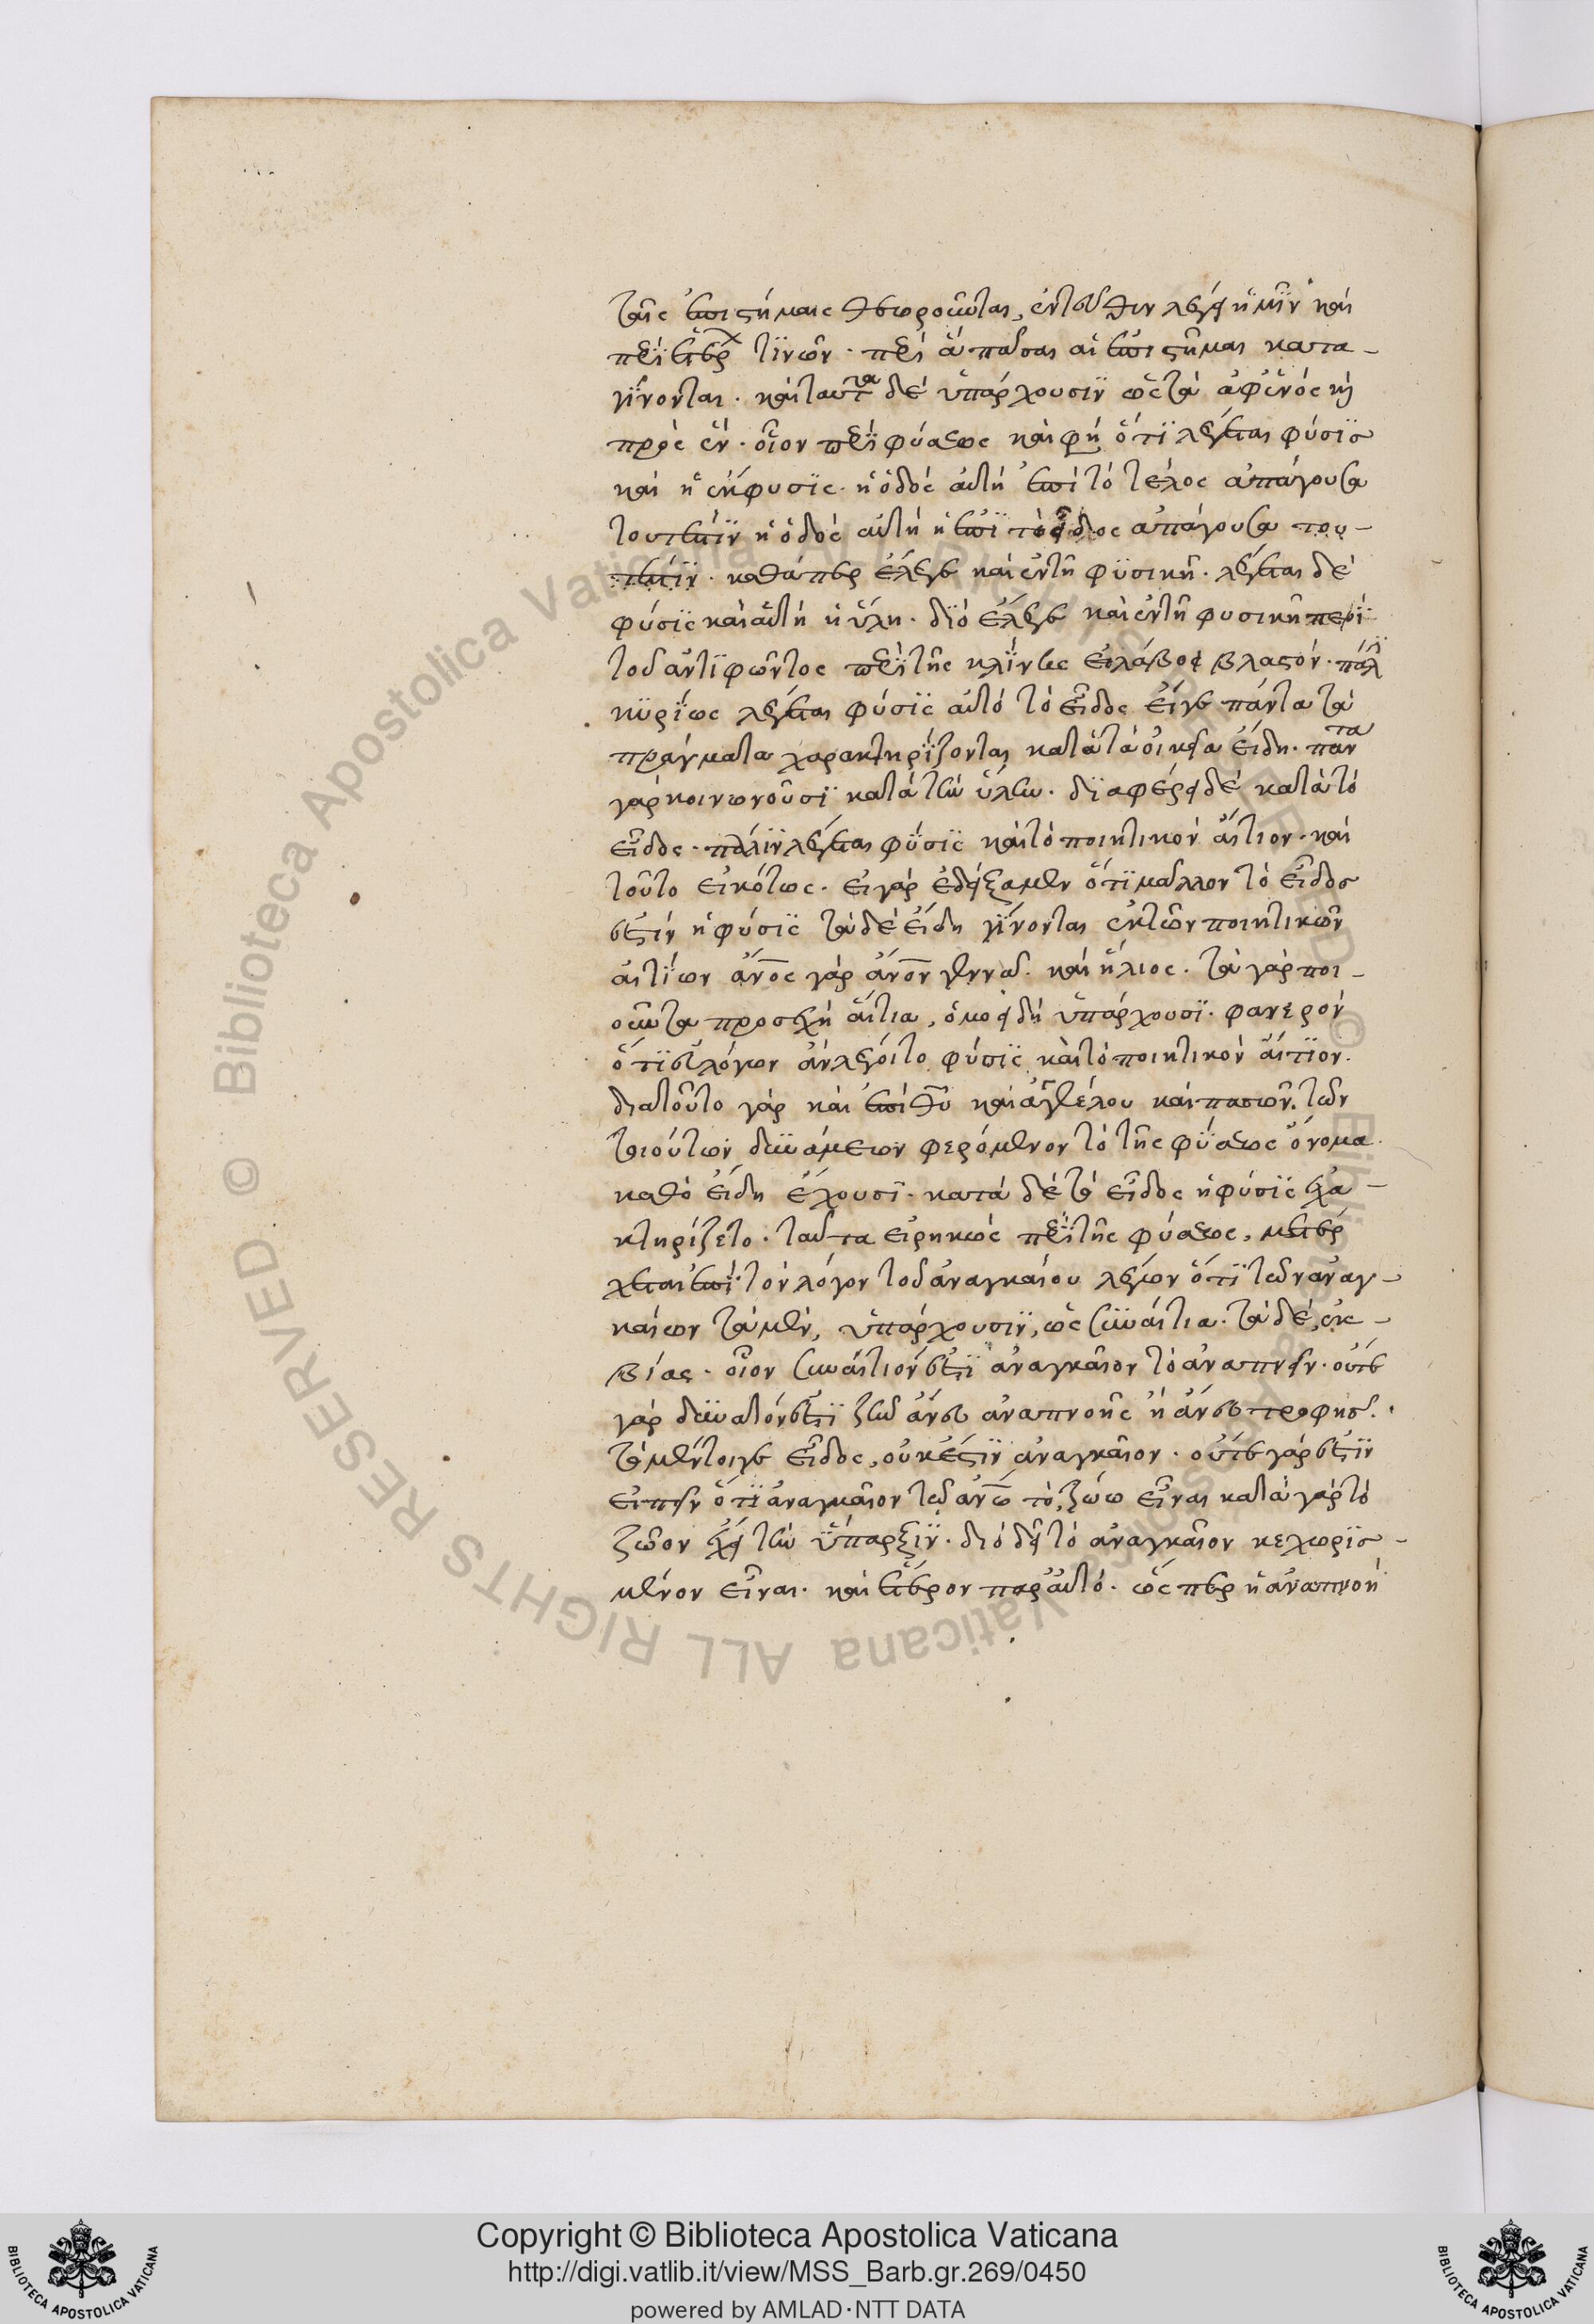 ταῖς ἐπιστήμαις θεωροῦνται, ἐντεῦθεν λέγει ἡμῖν καὶ
περὶ ἑτέρ τινῶν. περὶ ἃ πᾶσαι αἱ ἐπιστῆμαι κατα-
γίνονται. καὶ ταῦτα δὲ ὑπάρχουσιν ὡς τὰ ἀφ ἑνὸς καὶ
πρὸς ἕν. οἷον περὶ φύσεως καὶ φη ὅτι λέγεται φύσις
καὶ ἡ ἔκφυσις. ἡ ὁδὸς αὐτὴ ἐπὶ τὸ τέλος ἀπάγουσα
τουτέστιν ἡ ὁδὸς αὐτὴ ἡ ἐπὶ τὸ εἶδος ἀπάγουσα του-
τέστιν. καθάπερ ἔλεγε καὶ ἐν τῆ φυσικῆ. λέγεται δὲ
φύσις καὶ αὐτὴ ἡ ὕλη. διὸ ἔλεγε καὶ ἐν τῆ φυσικῆ περὶ
τοῦ ἀντιφῶντος περὶ τῆς κλίνης βλαστόν. πάλ
κυρίως λέγεται φύσις αὐτὸ τὸ εἶδος εἴγε πάντα τὰ
πράγματα χαρακτηρίζονται κατὰ τὰ οἰκεῖα εἴδη. πάντα
γὰρ κοινωνοῦσι κατὰ τὴν ὕλην. διαφέρει δὲ κατὰ τὸ
εἶδος. πάλιν λέγεται φύσις καὶ τὸ ποιητικὸν αἴτιον. καὶ
τοῦτο εἰκότως. εἰ γὰρ ἐδείξαμεν ὅτι μᾶλλον τὸ εἶδος
ἐστὶν ἡ φύσις τὰ δὲ εἴδη γίνονται ἐκ τῶν ποιητικῶν
αἰτίων ἄνος γὰρ ἄνον γεννᾶ. καὶ ἥλιος. τὰ γὰρ ποι-
οῦντα προσεχῆ αἴτια, ὁμοειδῆ ὑπάρχουσι. φανερὸν
ὅτι εὐλόγως ἂν λέγοιτο φύσις καὶ τὸ ποιητικὸν αἴτιον.
διατοῦτο γὰρ καὶ ἐπὶ θυ καὶ ἀγγέλου καὶ πασῶν τῶν
τοιούτων δυνάμεων φερόμενον τὸ τῆς φύσεως ὄνομα.
καθὸ εἴδη ἔχουσι. κατὰ δὲ τὸ εἶδος ἡ φύσις χα-
κτηρίζετο. ταῦτα εἰρηκὼς περὶ τῆς φύσεως, μετέρ
χεται ἐπὶ τὸν λόγον τοῦ ἀναγκαίου λέγων ὅτι τῶν ἀναγ-
καίων τὰ μὲν, ὑπάρχουσιν, ὡς συναίτια. τὰ δὲ, ἐκ
βίας. οἷον συναίτιον ἐστὶ ἀναγκαῖον τὸ ἀναπνεῖν. οὔτε
γὰρ δυνατὸν ἐστὶ ζῆν ἄνευ ἀναπνοῆς ἢ ἄνευ τροφῆς.
τὸ μέντοιγε εἶδος, οὐκ ἔστιν ἀναγκαῖον. οὔτε γὰρ ἐστὶν
εἰπεῖν ὅτι ἀναγκαῖον τῶ ἀνω τὸ, ζώω εἶναι κατὰ γὰρ τὸ
ζῶον ἔχει τὴν ὕπαρξιν. διὸ δεῖ τὸ ἀναγκαῖον κεχωρισ-
μένον εἶναι. καὶ ἕτερον παρ αὐτό. ὥσπερ ἡ ἀναπνοὴ
Copyright © Biblioteca Apostolica Vaticana
http://digi.vatlib.it/view/MSS_Barb.gr.269/0450
powered by AMLAD·NTT DATA
BIBLIOTECA APOSTOLICA VATICANA
BIBLIOTECA APOSTOLICA VATICANA
© Biblioteca Apostolica Vaticana ALL RIGHTS RESERVED